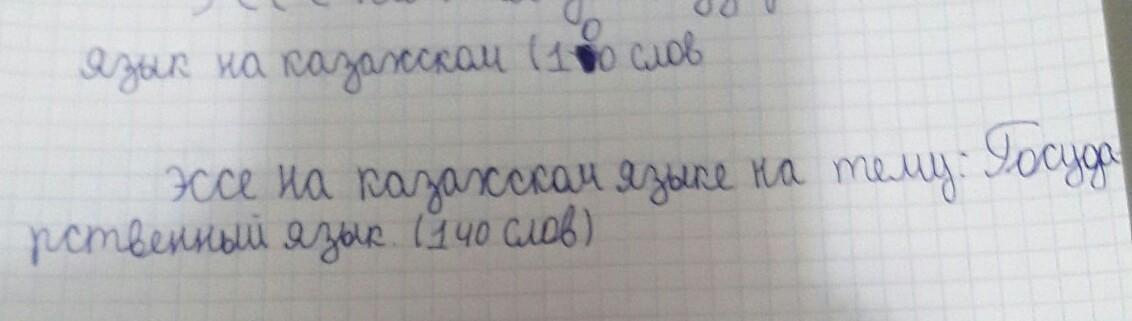 язык на казахском (100 слов
эссе на казахском языке на тему: Госуда
рственный язык. (140 слов)